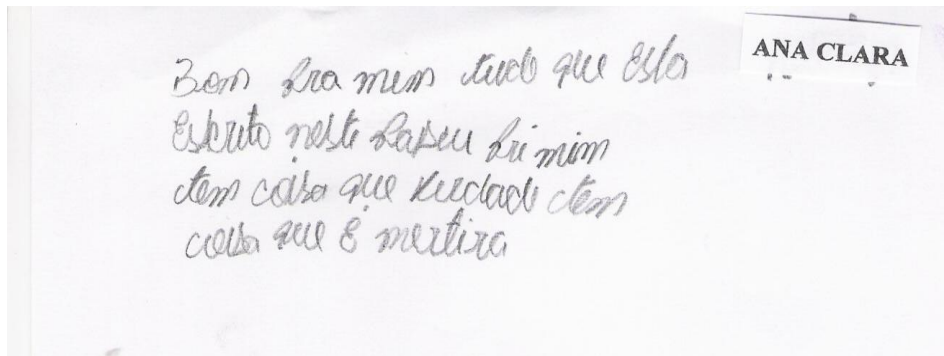 ANA CLARA
Bom pra mem tudo que Esta
Escrito neste papeu pri mim
tem coisa que verdade tem
coisa que é mertira